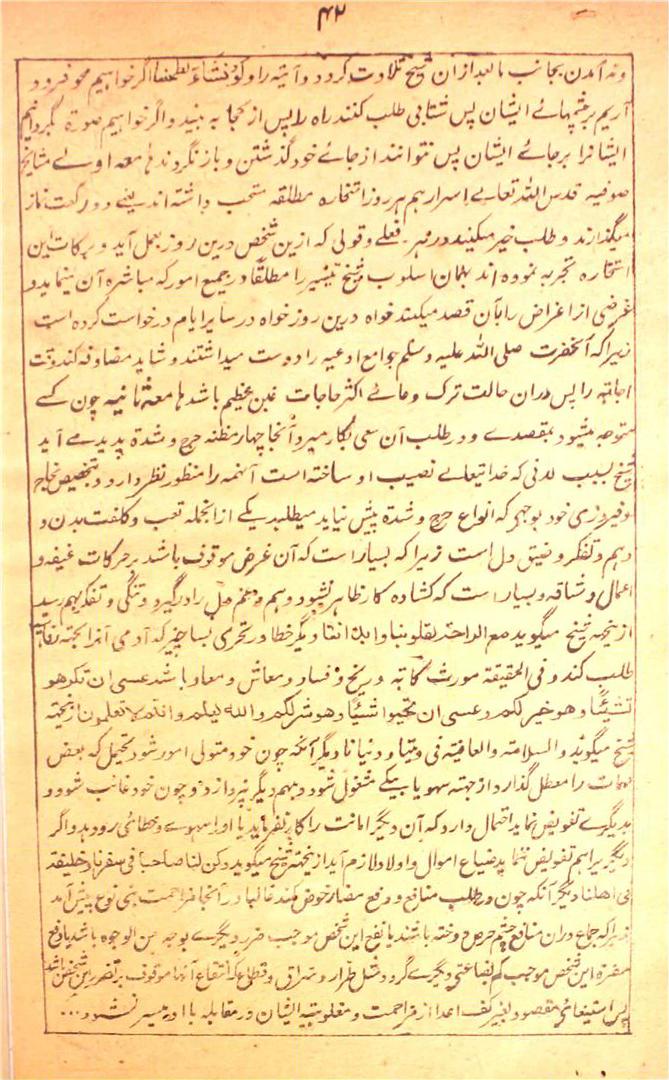 ۴۲
ونه آمدن بجانب مابعد ازان شیخ تلاوت کرد دو آیته را ولو نشاء لطمسنا اگر خواهیم محو فرود
آریم بر چشمهائے ایشان پس شتابی طلب کنند راه را پس از کجا به بینند و اگر خواهیم صورة بگردانیم
ایشانرا بر جائے ایشان پس نتوانند از جائے خود گذشتن و باز نگردند معه اولے مشایخ
صوفیه قدس الله تعالے اسرارهم هر روز استخاره مطلقه مستحب داشته اند یعنے دو رکعت نماز
میگذارند و طلب خیر میکنند در هر فعلے و قولی که ازین شخص درین روز بعمل آید و برکات این
استخاره تجربه نموده اند بهمان اسلوب شیخ تیسیر را مطلقا در جمیع امور که مباشره آن مینماید و
غرضی از اغراض را بآن قصد میکند خواه درین روز خواه در سایر ایام درخواست کرده است
زیرا که آنحضرت صلی الله علیه وسلم جوامع ادعیه را دوست میداشتند و شاید مصادفه کند وقت
اجابته را پس دران حالت ترک دعائے اکثر حاجات غبن عظیم باشد معه ثانیه چون کسے
متوجه میشود بمقصدے و در طلب آن سعی بکار میبرد آنجا چهار مظنه حرج و شدة پدید مے آید
شیخ بسبب لدنی که خدا تعالے نصیب او ساخته است آنهمه را منظور نظر دارد و بتخصیص نجاح
و فیروزی خود بوجهی که انواع حرج و شدة پیش نیاید میطلبد یکے ازانجمله تعب و کلفت بدن و
وهم و تفکر و ضیق دل است زیرا که بسیار است که آن غرض موقوف باشد بر حرکات عنیفه و
اعمال شاقه و بسیار است که کشاده کار ظاهر نشود و هم و غم دل را درگیرد و تنگی و تفکر بهم رسد
ازینجهه شیخ میگوید مع الراحة لقلوبنا وابداننا دیگر خطا در تحری بسا چیز که آدمی آنرا بجهة
طلب کند و فی الحقیقة مورث کآبه و رنج و فساد و معاش و معاد باشد عسی ان تکرهو
شیئا وهو خیر لکم وعسی ان تحبوا شیئا وهو شر لکم والله یعلم وانتم لا تعلمون ازینجهة
شیخ میگوید والسلامته والعافیته فی دیننا و دنیانا دیگر آنکه چون خود متولی امور شود تحیل که بعض
مهمات را معطل گذارد از جهته سهو یا بیکے مشغول شود و بهم دیگر نپردازد و چون خود غائب شود و
بدیگرے تفویض نماید احتمال دارد که آن دیگر امانت را کار نفرماید یا او را سهوے و خطائی رود و اگر
دیگریرا هم تفویض ننماید ضیاع اموال و اولاد لازم آید ازینجهته شیخ میگوید وکن لنا صاحبا فی سفرنا و خلیفة
فی اهلنا دیگر آنکه چون در طلب منافع و دفع مضار خوض کند غالبا در آنجا مزاحمت بنی نوع پیش آمد
زیرا که جماع دران منافع چشم حرص دوخته باشند یا نفع این شخص موجب ضرر دیگرے بوجه من الوجوه باشد یا دفع
مضرة این شخص موجب کم بضاعتی دیگرے گردد مثل طرار و سراق و قطاع که انتفاع آنها موقوف بر تضرر این شخص باشد
پس استیفائے مقصود بغیر کف اعدا از مزاحمت و مغلوبیة ایشان در مقابله با او میسر نشود ...